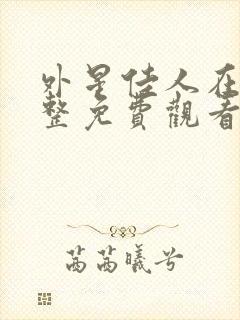 外星佳人在
整免費觀看
茜茜曦兮